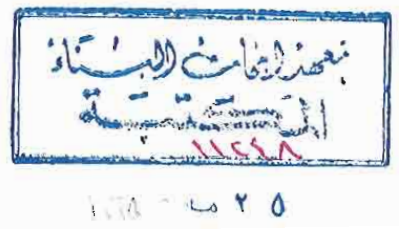 معهد ابحاث البناء
المكتبة
١١٢٤٨
٢٥ ما